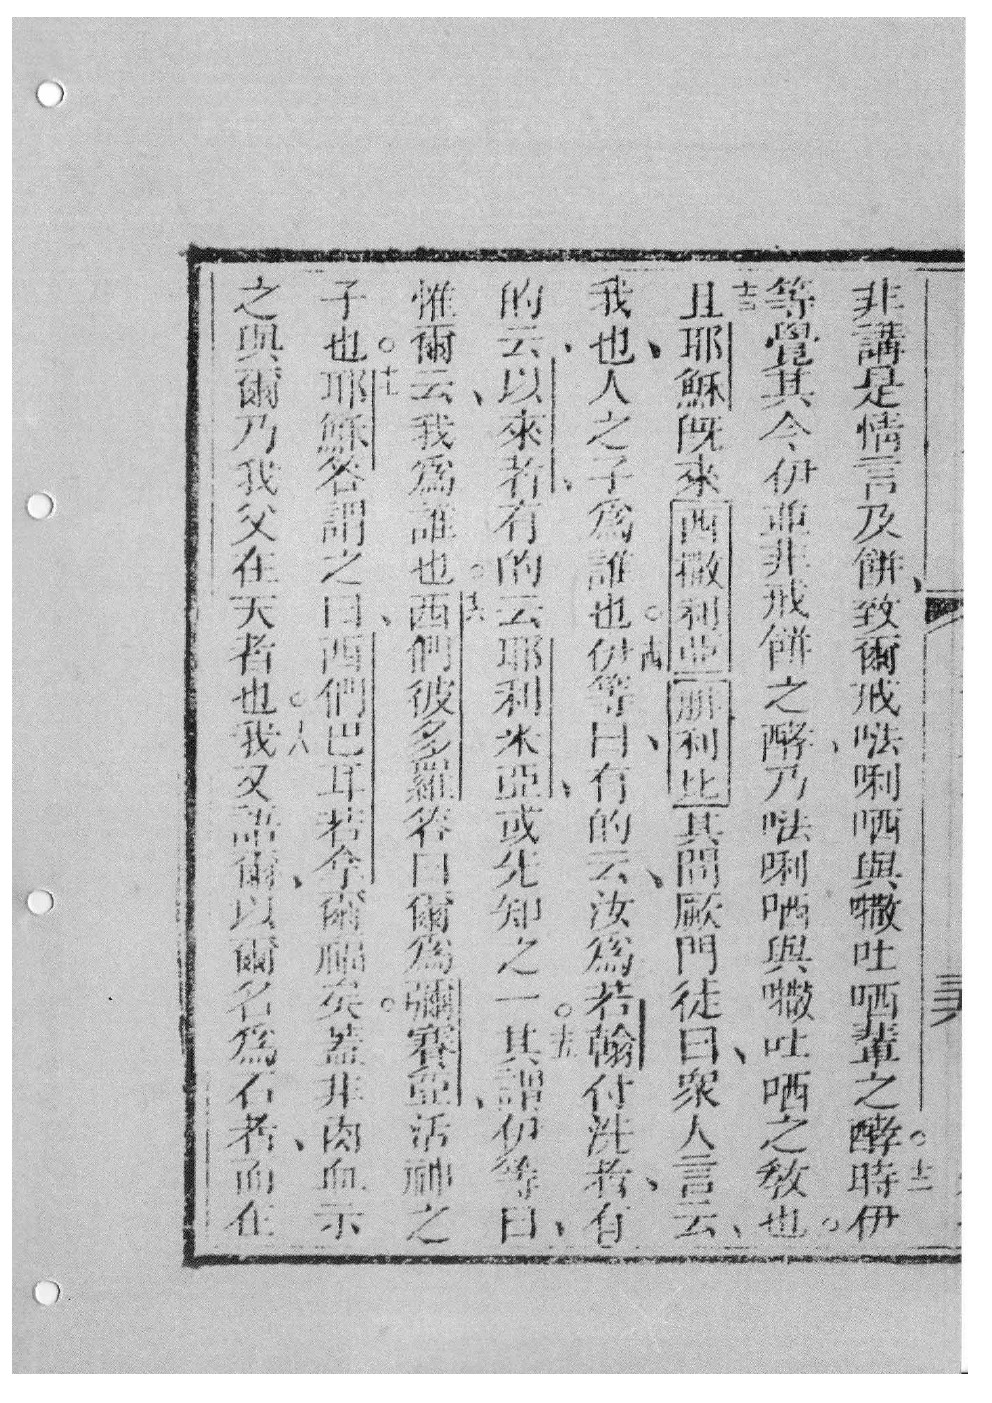 非講是情言及餅、致爾戒㗓唎哂與㘔吐哂輩之酵。十二時伊
等覺其令伊並非戒餅之酵、乃㗓唎哂與㘔吐哂之教也。
十三且耶穌既來西撒利亞腓利比其問厥門徒曰、眾人言云、
我也、人之子為誰也。十四伊等曰、有的云、汝為若翰付洗者、有
的云、以來者、有的云耶利米亞、或先知之一。十五其謂伊等曰、
惟爾云、我為誰也。十六西們彼多羅答曰爾為彌賽亞、活神之
子也。十七耶穌答謂之曰、西們巴耳若拿爾福矣。蓋非肉血示
之與爾乃我父在天者也。十八我又語爾、以爾名為石者、而在